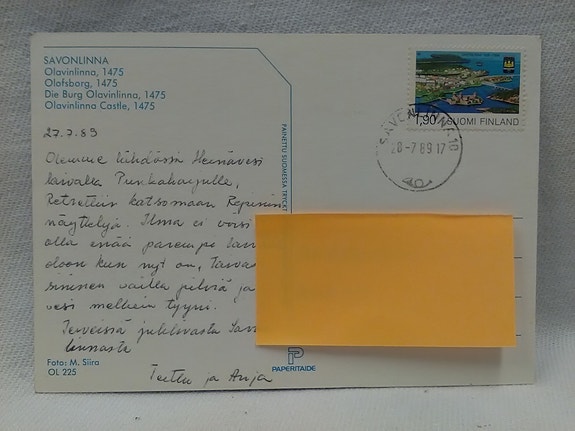 SAVONLINNA
Olavinlinna, 1475
Olofsborg, 1475
Die Burg Olavinlinna, 1475
Olavinlinna Castle, 1475
27.7.89
Olemme lähdössä Heinävesi
laivalla Punkaharjulle,
Retrettiin katsomaan Repinin
näyttelyä. Ilma ei voisi
olla enää parempi Savon
kun nyt on, Taivas
sininen vailla pilviä ja
vesi melkein tyyni.
Terveisiä
linnasta
Terttu ja Anja
Foto: M. Siira
OL 225
PAINETTU SUOMESSA TRYCKT
PAPERITAIDE
1,90 SUOMI FINLAND
SAVONLINNA 10
28-7.89 17